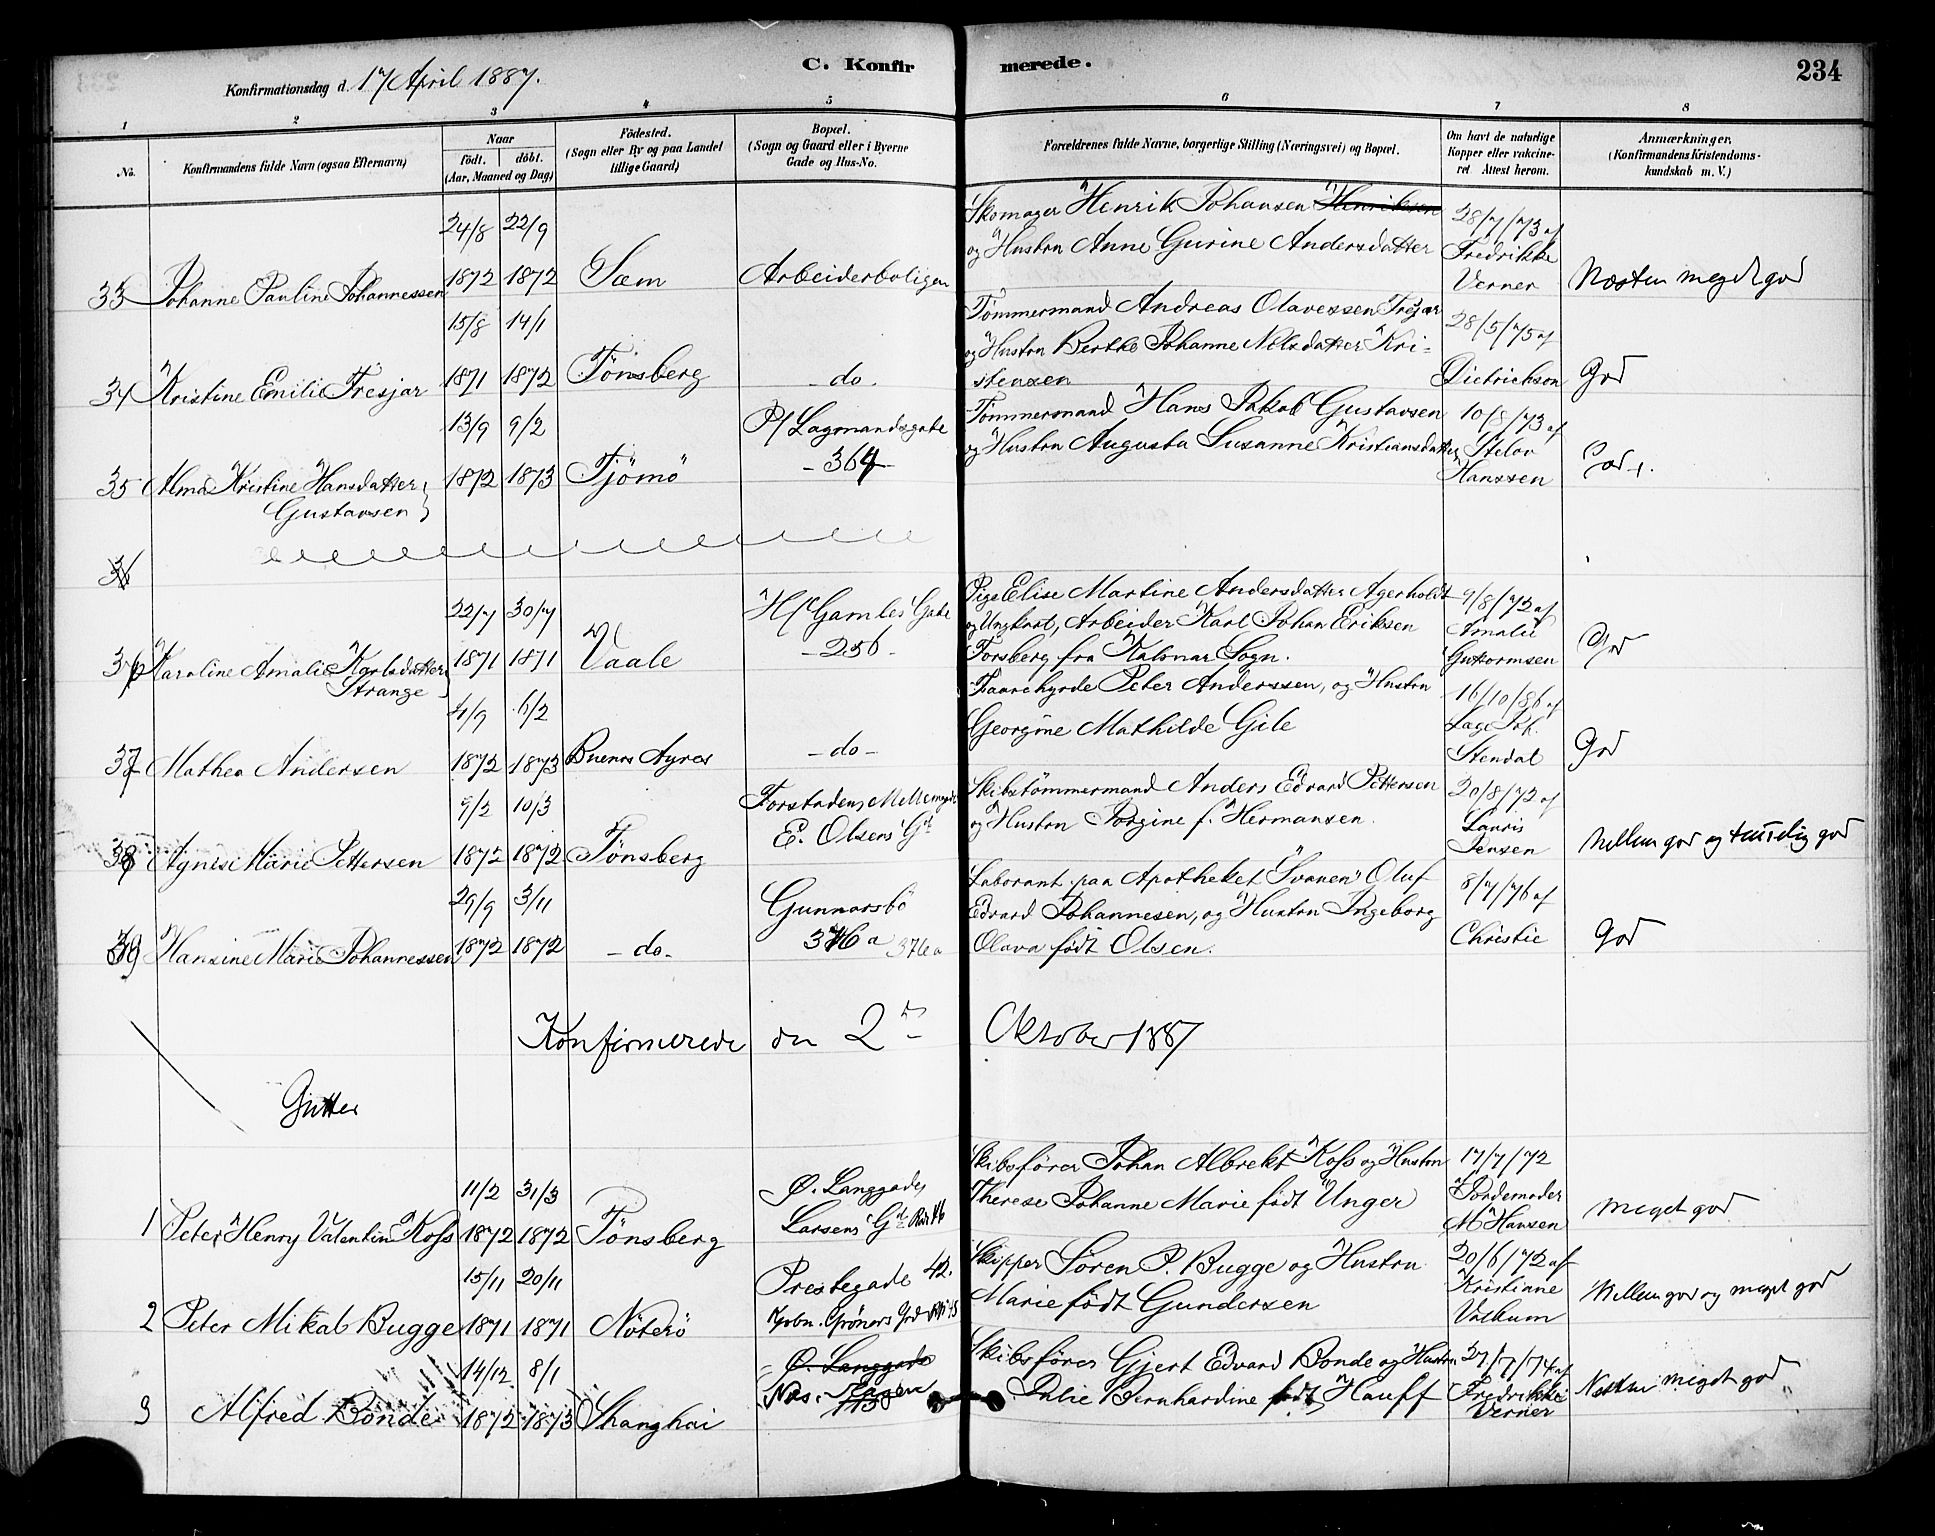 Konfirmationsdag d. 17 April 1887.
C. Konfir
merede.
234
1 2 3 4 5 6 7 8
No.
Konfirmandens fulde Navn (ogsaa Efternavn)
Naar
födt. döbt.
(Aar, Maaned og Dag)
Födested.
(Sogn eller By og paa Landet
tillige Gaard)
Bopæl.
(Sogn og Gaard eller i Byerne
Gade og Hus-No.
Forældrenes fulde Navne, borgerlige Stilling (Næringsvei) og Bopæl.
Om havt de naturlige
Kopper eller vakcine-
ret. Attest herom.
Anmærkninger,
(Konfirmandens Kristendoms-
kundskab m. V.)
24/8 22/9 Skomager Henrik Johansen Henriksen 28/7/73 af
og Hustru Anne Gurine Andersdatter Fredrikke
33 Johanne Pauline Johannessen 1872 1872 Sæm Arbeiderboligen Verner Næsten meget god
15/8 14/1 Tömmermand Andreas Olavessen Fresjar 28/5/75 af
og Hustru Berthe Johanne Nilsdatter Kri-
34 Kristine Emilie Fresjar 1871 1872 Tönsberg - do. stensen Dietrickson God
13/9 9/2 Lagmandsgate Tömmermand Hans Jakob Gustavsen 10/8/73 af
og Hustru Augusta Susanne Kristiansdatter
35 Alma Kristine Hansdatter 1872 1873 Tjömö - 364 - Hanssen God
Gustavsen
36
22/7 30/7 Gamles Gade Pige Elise Martine Andersdatter Agerholdt 9/8/72 af
og Ungkarl, Arbeider Karl Johan Eriksen Amalie
36 Karoline Amalie Karlsdatter 1871 1871 Vaale - 256 - Forsberg fra Kalmar Sogn. Gutormsen God
Strange
4/9 6/2 Faarehyrde Peter Anderssen, og Hustru 16/10/86 af
Georgine Mathilde Gale
37 Mathea Andersen 1872 1873 Buenos Ayres - do - Stendal God
9/2 10/3 Forstadens Skibstömmermand Anders Edvard Pettersen 20/8/72 af
E. Olsens Gd og Hustru Jorgine f. Hermansen. Lauris
38 Agnes Marie Pettersen 1872 1872 Tönsberg Jensen Mellem god og temelig god
29/9 3/11 Gunnarsbö Laborant paa Apotheket "Svanen" Oluf 8/7/76 af
Edvard Johannesen, og Hustru Ingeborg
39 Hansine Marie Johannessen 1872 1872 - do - 376 a 376 a Olava födt Olsen. Christie God
Konfirmerede den 2den Oktober 1887
Gutter
11/2 31/3 Ø. Langgade, Skibsförer Johan Albrekt Koss og Hustru 17/7/72
Therese Johanne Marie födt Unger Jordemoder
1 Peter Henry Valentin Koss 1872 1872 Tönsberg Larsens Gd M Hansen meget god
15/11 20/11 Prestegade 42. Skipper Sören P. Bugge og Hustru 20/6/72 af
Marie födt Gundersen Kristiane
2 Peter Mikal Bugge 1871 1871 Nöterö Grøners Valkum Mellem god og meget god
14/12 8/1 Ø. Langgade Skibsförer Gjert Edvard Bonde og Hustru 27/7/74 af
3 Alfred Bonde 1872 1873 Shanghai 113 Julie Bernhardine födt Hauff Fredrikke Næsten meget god
Verner